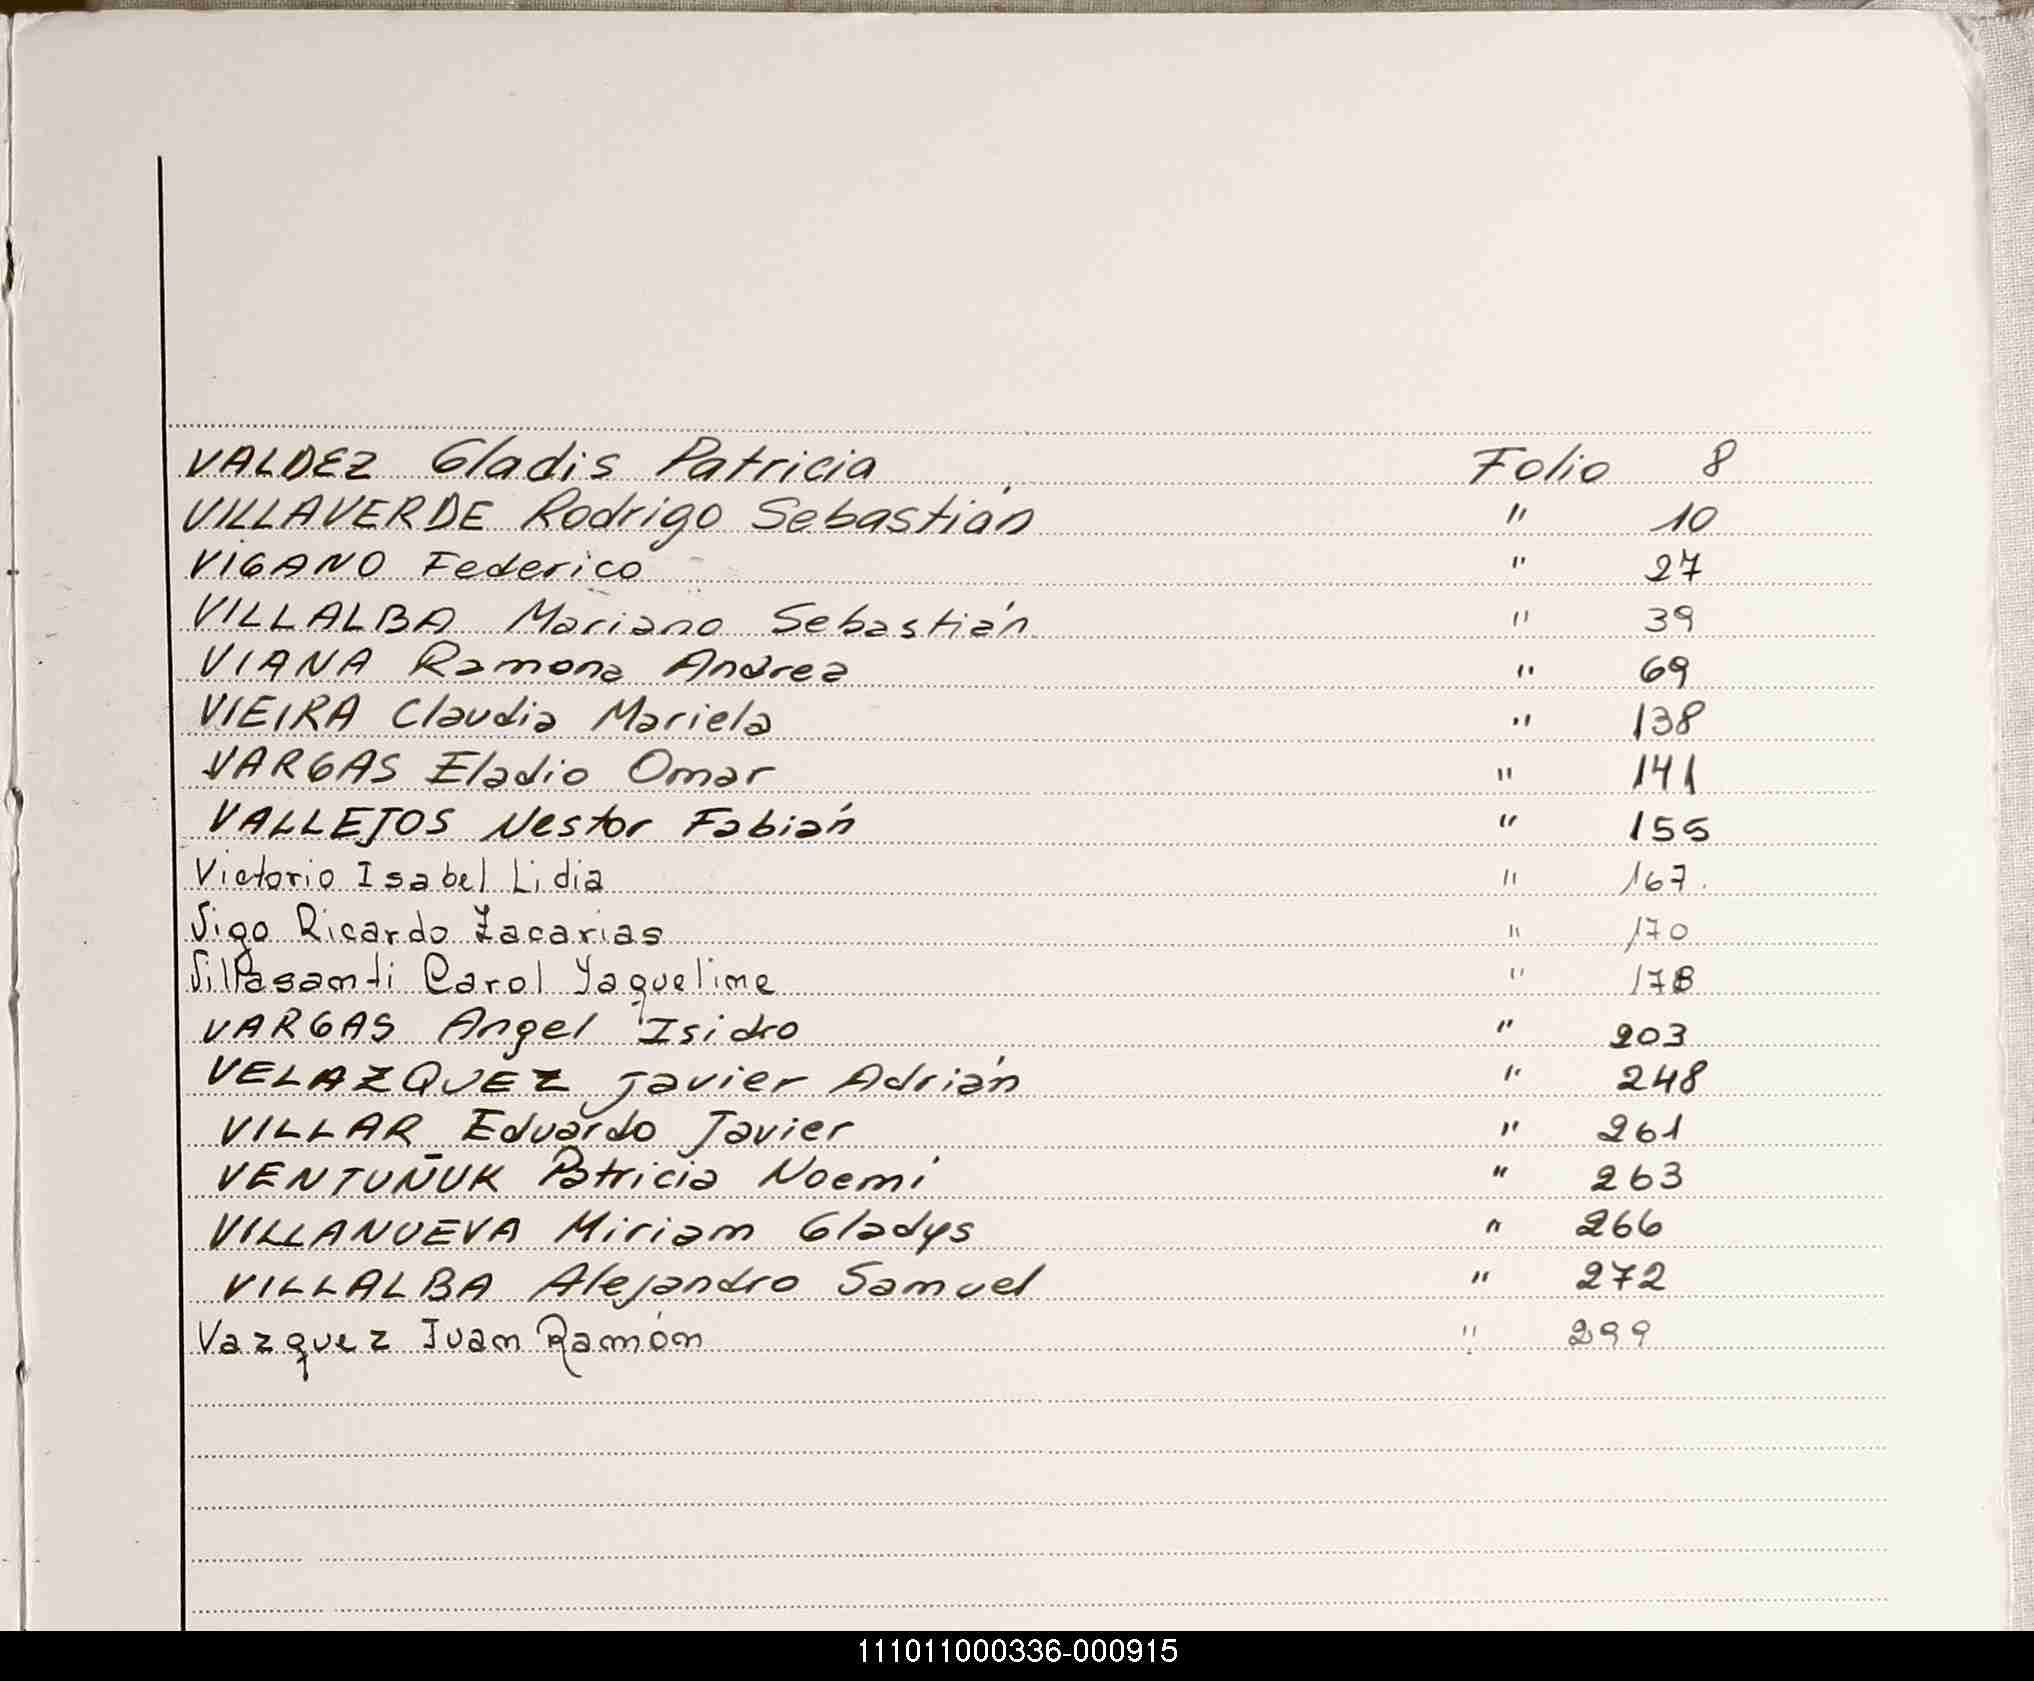 VALDEZ Gladis Patricia Folio 8
VILLAVERDE Rodrigo Sebastián " 10
VIGANO Federico " 27
VILLALBA Mariano Sebastián " 39
VIANA Ramona Andrea " 69
VIEIRA Claudia Mariela " 138
VARGAS Eladio Omar " 141
VALLEJOS Nestor Fabián " 155
Victorio Isabel Lidia " 167.
Vigo Ricardo Zacarias " 170
Villasanti Carol Yaqueline " 178
VARGAS Angel Isidro " 203
VELAZQUEZ Javier Adrián " 248
VILLAR Eduardo Javier " 261
VENTUÑUK Patricia Noemí " 263
VILLANUEVA Miriam Gladys " 266
VILLALBA Alejandro Samuel " 272
Vazquez Juan Ramón " 299
111011000336-000915